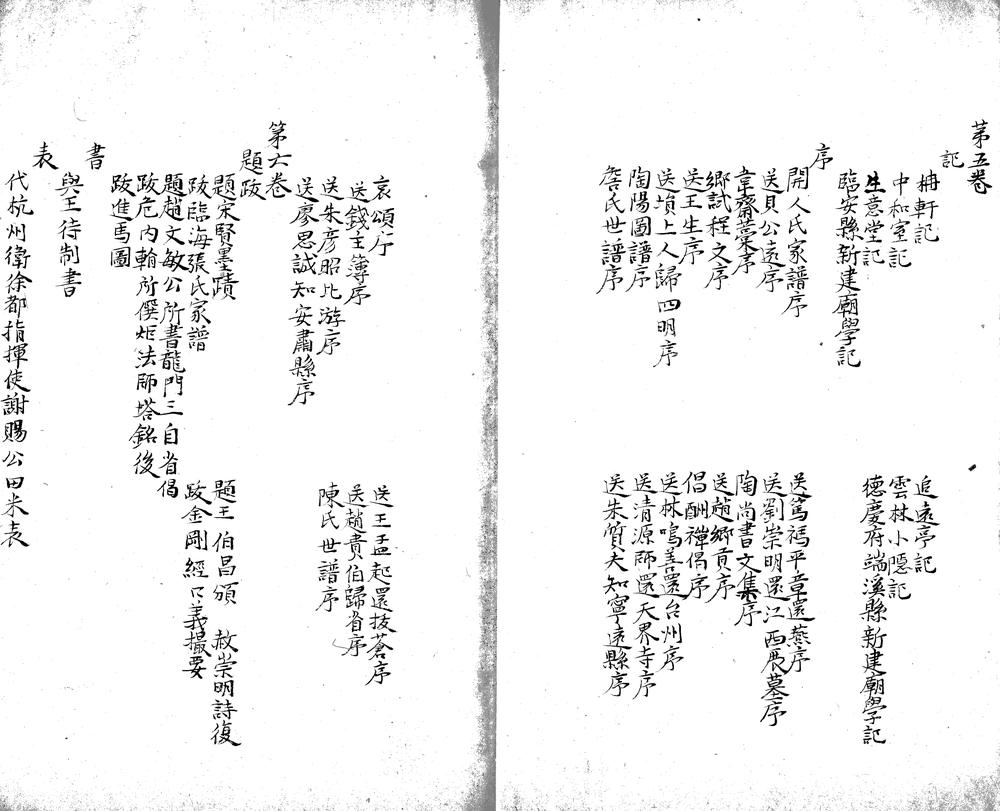 第五卷
記
柟軒記
追遠亭記
中和室記
雲林小隱記
生意堂記
德慶府端溪縣新建廟學記
臨安縣新建廟學記
序
開人氏家譜序
送篤禡平章還燕序
送貝公遠序
送劉崇明還江西展墓序
韋齋藁序
陶尚書文集序
鄉試程文序
送趙鄉貢序
送王生序
倡酬禪偈序
送塤上人歸四明序
送林鳴善還台州序
陶陽圖譜序
送清源師還天界寺序
詹氏世譜序
送朱質夫知寧遠縣序
哀頌序
送王孟起還括蒼序
送錢主簿序
送趙貴伯歸省序
送朱彥昭北游序
陳氏世譜序
送廖思誠知安肅縣序
第六卷
題跋
題宋賢墨蹟
題王伯昌頒 赦崇明詩復
跋臨海張氏家譜
跋金剛經口義撮要
題趙文敏公所書龍門三自省偈
跋危內翰所僎炬法師塔銘後
跋進馬圖
書
與王待制書
表
代杭州衛徐都指揮使謝賜公田米表